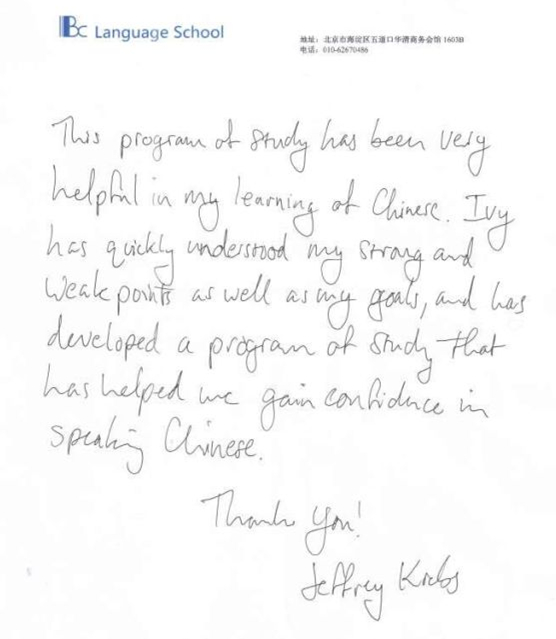 Bc Language School
地址：北京市海淀区五道口华清商务会馆 1603B
电话：010-62670486
This program of study has been very
helpful in my learning of Chinese. Ivy
has quickly understood my strong and
weak points as well as my goals, and has
developed a program of study that
has helped me gain confidence in
speaking Chinese.
Thank you!
Jeffrey Krebs